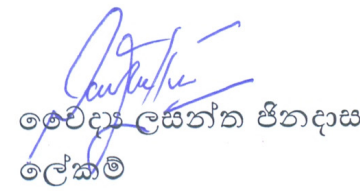 වෛද්‍ය ලසන්ත ජිනදාස
ලේකම්